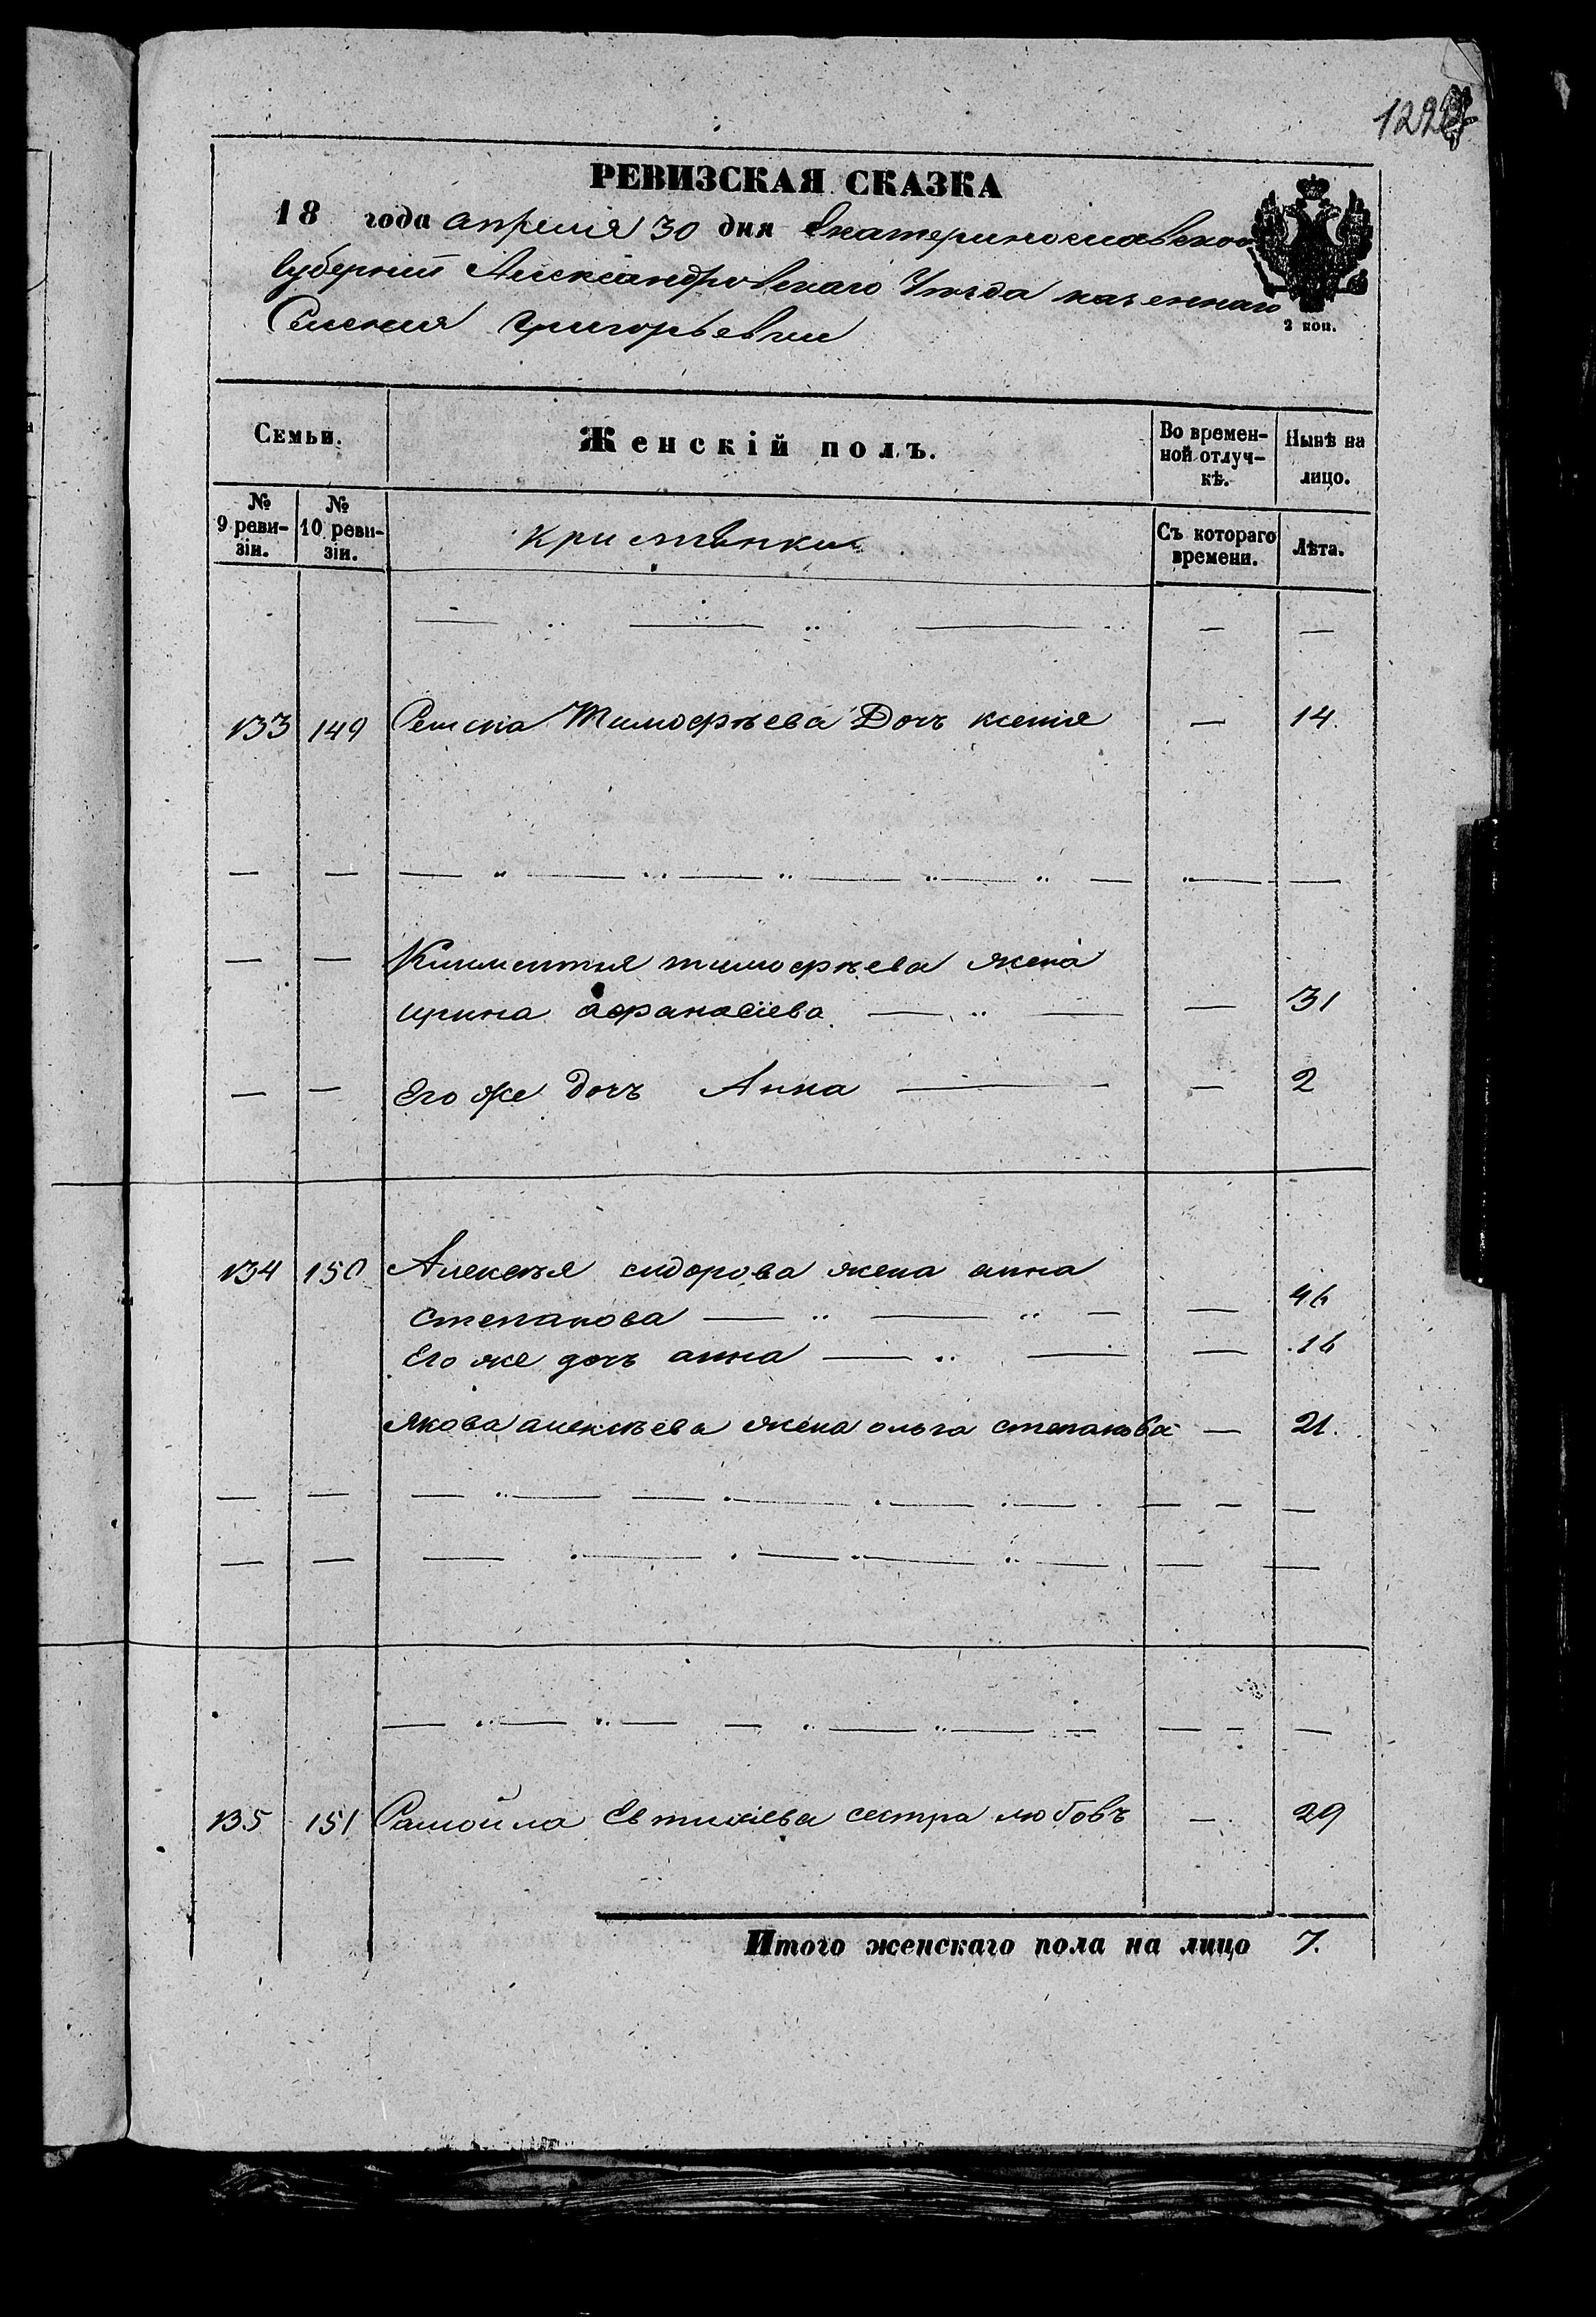 РЕВИЗСКАЯ СКАЗКА
18 года апреля 30 дня Екатеринославской
Губернии Александровскаго Уезда казеннаго
Селения Григорьевки
2 коп.
Семьи.
Женскій полъ.
Во времен-
ной отлуч-
кѣ.
Нынѣ на
лицо.
№
9 реви-
зіи.
№
10 реви-
зіи.
Съ котораго
времени.
Лѣта.
133 149 Тимофѣева Дочъ ксенія — 14.
Климентия тимофѣева жена
ирина афанасіева — 31
Его же дочъ Анна — 2
134 150 Алексѣя сидорова жена анна
степанова — 46
Его же дочъ анна — 16
Якова алексѣева жена ольга степанова — 21.
135 151 Самойла сестра любовъ — 29
Итого женскаго пола на лицо 7.